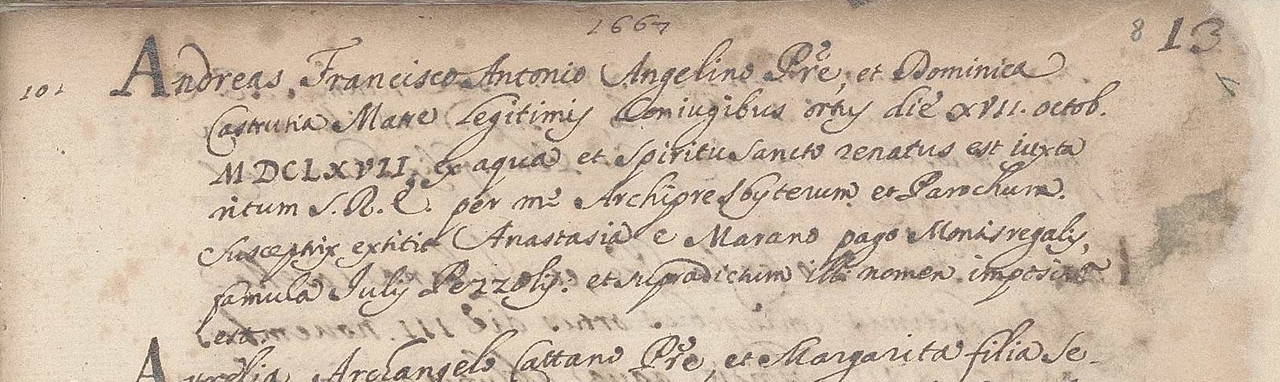 1667
8 13
101 Andreas, Francisco Antonio Angelino Pr̃e, et Dominica
Castrutia Matre legitimis Coniugibus ortus die XVII. octob.
MDCLXVII, ex aqua et Spiritu Sancto renatus est iuxta
ritum S. R. E. per me Archipresbyterum et Parochum.
Susceptrix extitit Anastasia e Marano pago Montisregalis,
famula Julij Pezzolij: et supradictum illi nomen impositũ
est.
Aurelia, Archangelo Cattano Pr̃e, et Margarita filia Se-